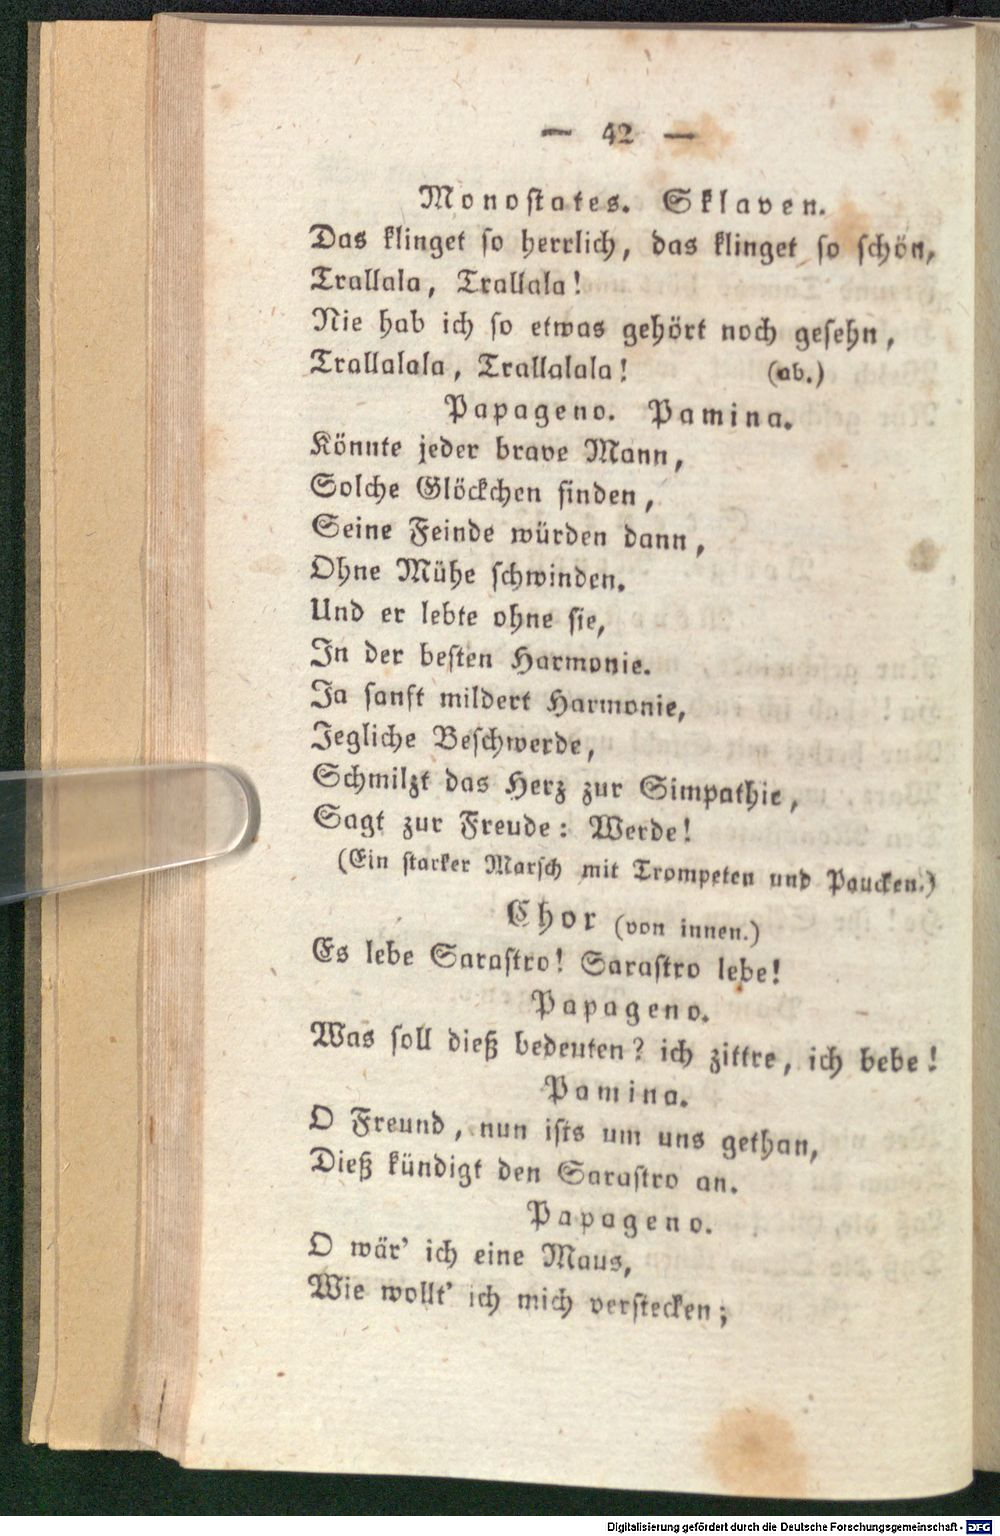 — 42 —
Monostates. Sklaven.
Das klinget so herrlich, das klinget so schön,
Trallala, Trallala!
Nie hab ich so etwas gehört noch gesehn,
Trallalala, Trallalala! (ab.)
Papageno. Pamina.
Könnte jeder brave Mann,
Solche Glöckchen finden,
Seine Feinde würden dann,
Ohne Mühe schwinden.
Und er lebte ohne sie,
In der besten Harmonie.
Ja sanft mildert Harmonie,
Jegliche Beschwerde,
Schmilzt das Herz zur Simpathie,
Sagt zur Freude: Werde!
(Ein starker Marsch mit Trompeten und Paucken.)
Chor (von innen.)
Es lebe Sarastro! Sarastro lebe!
Papageno.
Was soll dieß bedeuten? ich zittre, ich bebe!
Pamina.
O Freund, nun ists um uns gethan,
Dieß kündigt den Sarastro an.
Papageno.
O wär' ich eine Maus,
Wie wollt' ich mich verstecken;
Digitalisierung gefördert durch die Deutsche Forschungsgemeinschaft - DFG